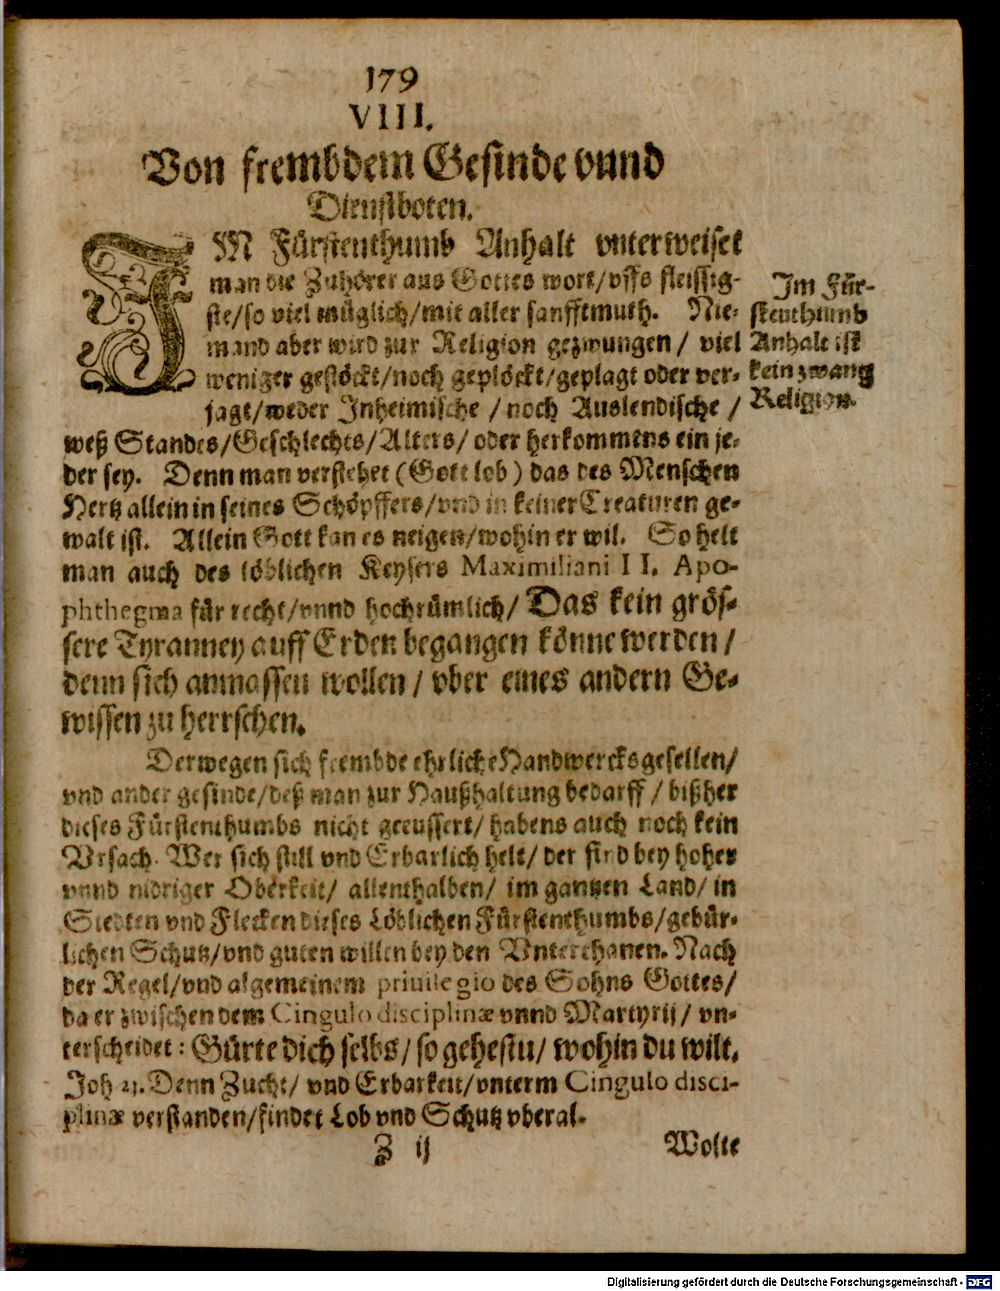 179
VIII.
Von frembdem Gesinde vnnd
Dienstboten.
IM Fürstenthumb Anhalt vnterweiset
man die Zuhörer aus Gottes wort/vffs fleissig-
ste/so viel müglich/mit aller sanfftmuth. Nie-
mand aber wird zur Religion gezwungen/ viel
weniger gestöckt/noch geplöckt/geplagt oder ver-
jagt/weder Inheimische /noch Auslendische /
weß Standes/Geschlechts/Alters/ oder herkommens ein je-
der sey. Denn man verstehet (Gott lob) das des Menschen
Hertz allein in seines Schöpffers/vnd in keiner Creaturen ge-
walt ist. Allein Gott kan es neigen/wohin er wil. So helt
man auch des löblichen Keysers Maximiliani II. Apo-
phthegma für recht/vnnd hochrümlich/ Das kein grös-
sere Tyranney auff Erden begangen könne werden/
denn sich anmassen wollen/ vber eines andern Ge-
wissen zu herrschen.
Im Für-
stenthumb
Anhalt ist
kein zwang
Religion.
Derwegen sich frembde ehrliche Handwercksgesellen/
vnd ander gesinde/deß man zur Haußhaltung bedarff/ bißher
dieses Fürstenthumbs nicht geeussert/ habens auch noch kein
Vrsach. Wer sich still vnd Erbarlich helt/ der find bey hoher
vnnd nidriger Oberkeit/ allenthalben/ im gantzen Land/ in
Stedten vnd Flecken dieses Löblichen Fürstenthumbs/gebür-
lichen Schutz/vnd guten willen bey den Vnterthanen. Nach
der Regel/vnd algemeinem priuilegio des Sohns Gottes/
da er zwischen dem Cingulo disciplinæ vnnd Martyrij/ vn-
terscheidet: Gürte dich selbs/ so gehestu/ wohin du wilt.
Joh 21. Denn Zucht/ vnd Erbarkeit/vnterm Cingulo disci-
plinæ verstanden/findet Lob vnd Schutz vberal.
Z ij
Wolte
Digitalisierung gefördert durch die Deutsche Forschungsgemeinschaft - DFG